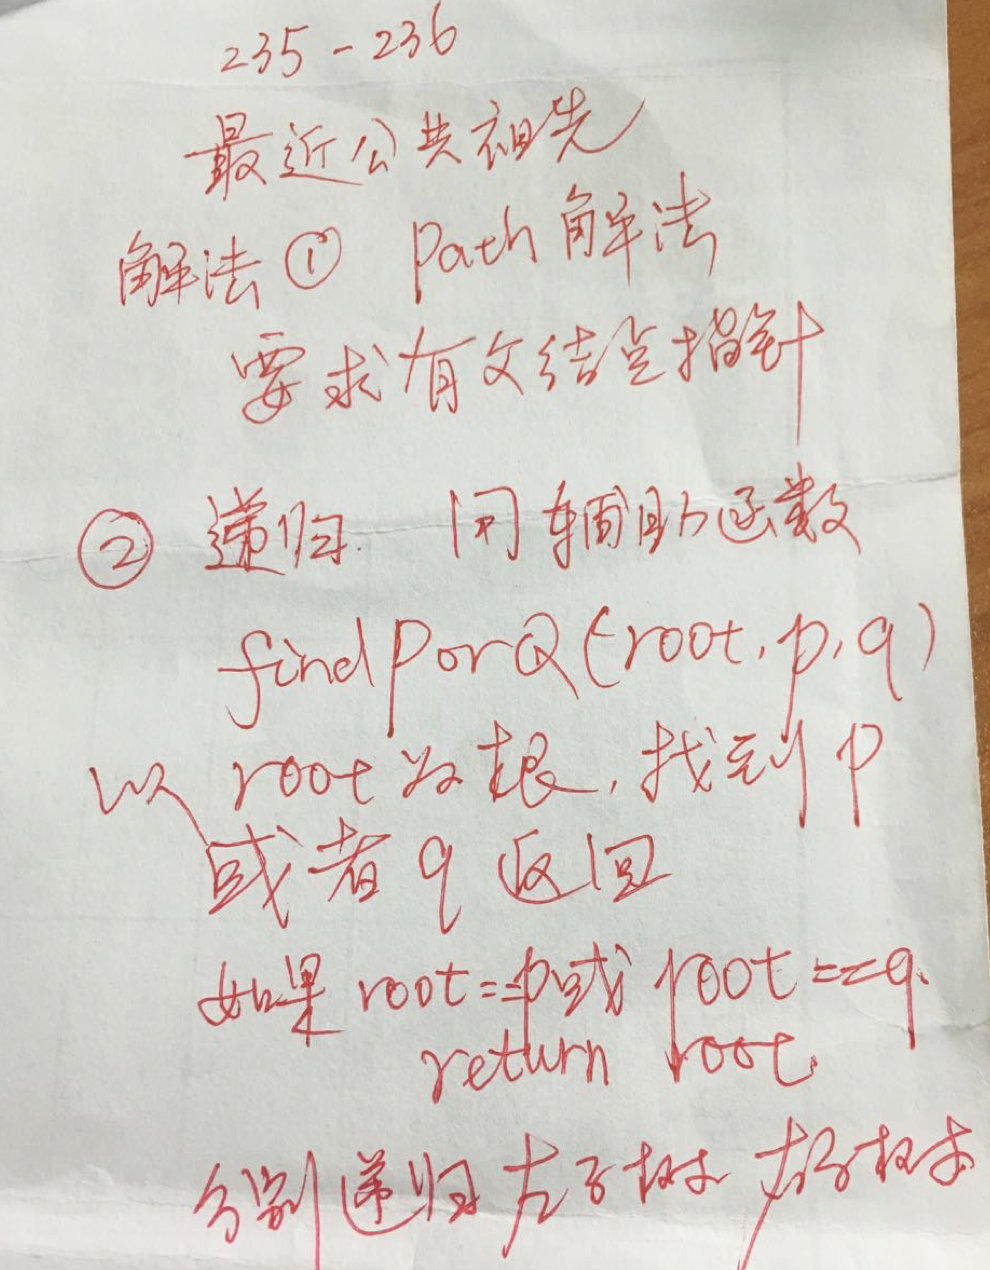 235-236
最近公共祖先
解法① Path解法
要求有父结点指针
② 递归. 用辅助函数
findPorQ(root, p, q)
以 root 为根, 找到 p
或者 q 返回
如果 root==p或 root==q.
return root.
分别递归左子树 右子树